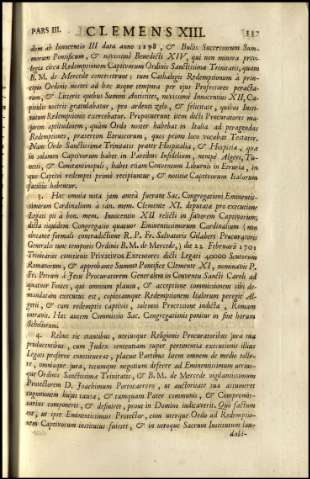 PARS III. CLEMENS XIII. 337
dem ab Innocentio III data anno 1198, & Bullis Successorum Summorum
Pontificum, & novissimè Benedicti XIV, qui non minora privilegia
circa Redemptionem Captivorum Ordini Sanctissimæ Trinitatis, quàm
B. M. de Mercede concesserunt; tum Cathalogis Redemptionum à principio
Ordinis nostri ad hæc usque tempora per ejus Professores peractarum,
& Litteris quibus Summi Antistites, novissimè Innocentius XII, Capitulis
nostris gratulabatur, pro ardenti zelo, & felicitate, quibus Institutum
Redemptionis exercebatur. Proposuerunt item dicti Procuratores majorem
aptitudinem, quàm Ordo noster habebat in Italia ad peragendas
Redemptiones, præsertim Etruscorum, quos primo loco vocabat Testator.
Nam Ordo Sanctissimæ Trinitatis præter Hospitalia, & Hospitia, quæ
in solamen Captivorum habet in Partibus Infidelium, nempè Algerii, Tuneti,
& Constantinopoli, habet etiam Conventum Liburni in Etruria, in
quo Captivi redempti primò recipiuntur, & notitiæ Captivorum Italorum
faciliùs habentur.
3. Hac omnia nota jam anteà fuerant Sac. Congregationi Eminentissimorum
Cardinalium à san. mem. Clemente XI. deputatæ pro executione
Legati pii à bon. mem. Innocentio XII relicti in favorem Captivorum;
dicta siquidem Congregatio quatuor Eminentissimorum Cardinalium (non
obstante formali contradictione R. P. Fr. Salvatoris Gilabert Procuratoris
Generalis tunc temporis Ordinis B. M. de Mercede,) die 22 Februarii 1701
Trinitarios constituit Privativos Exequutores dicti Legati 40000 Scutorum
Romanorum, & approbante Summo Pontifice Clemente XI, nominatim P.
Fr. Petrum à Jesu Procuratorem Generalem in Conventu Sancti Caroli ad
quatuor Fontes, qui omnium planè, & acceptione commissionem sibi demandatam
executus est, copiosamque Redemptionem Italorum peregit Algerii,
& cum redemptis captivis, solemni Processione indicta, Romam
intravit. Hac autem Commissio Sac. Congregationis ponitur in fine horum
4. Rebus sic stantibus, utriusque Religionis Procuratoribus jura sua
producentibus, cum Judex sententiam super pertinentia executionis illius
Legati proferre constituerat, placuit Partibus litem omnem de medio tollere,
omniaque jura, totumque negotium deferre ad Eminentissimum utriusque
Ordinis Sanctissimæ Trinitatis, & B. M. de Mercede vigilantissimum
Protectorem D. Joachimum Portocarrero, ut auctoritate sua assumeret
cognitionem hujus causæ, & tamquam Pater communis, & Compromissarius
componeret, & definiret, prout in Domino indicaverit. Quo factum
est, ut ipse Eminentissimus Protector, cum uterque Ordo ad Redemptionem
Captivorum institutus fuisset, & in utroque Sacrum Institutum lau-
dabi-